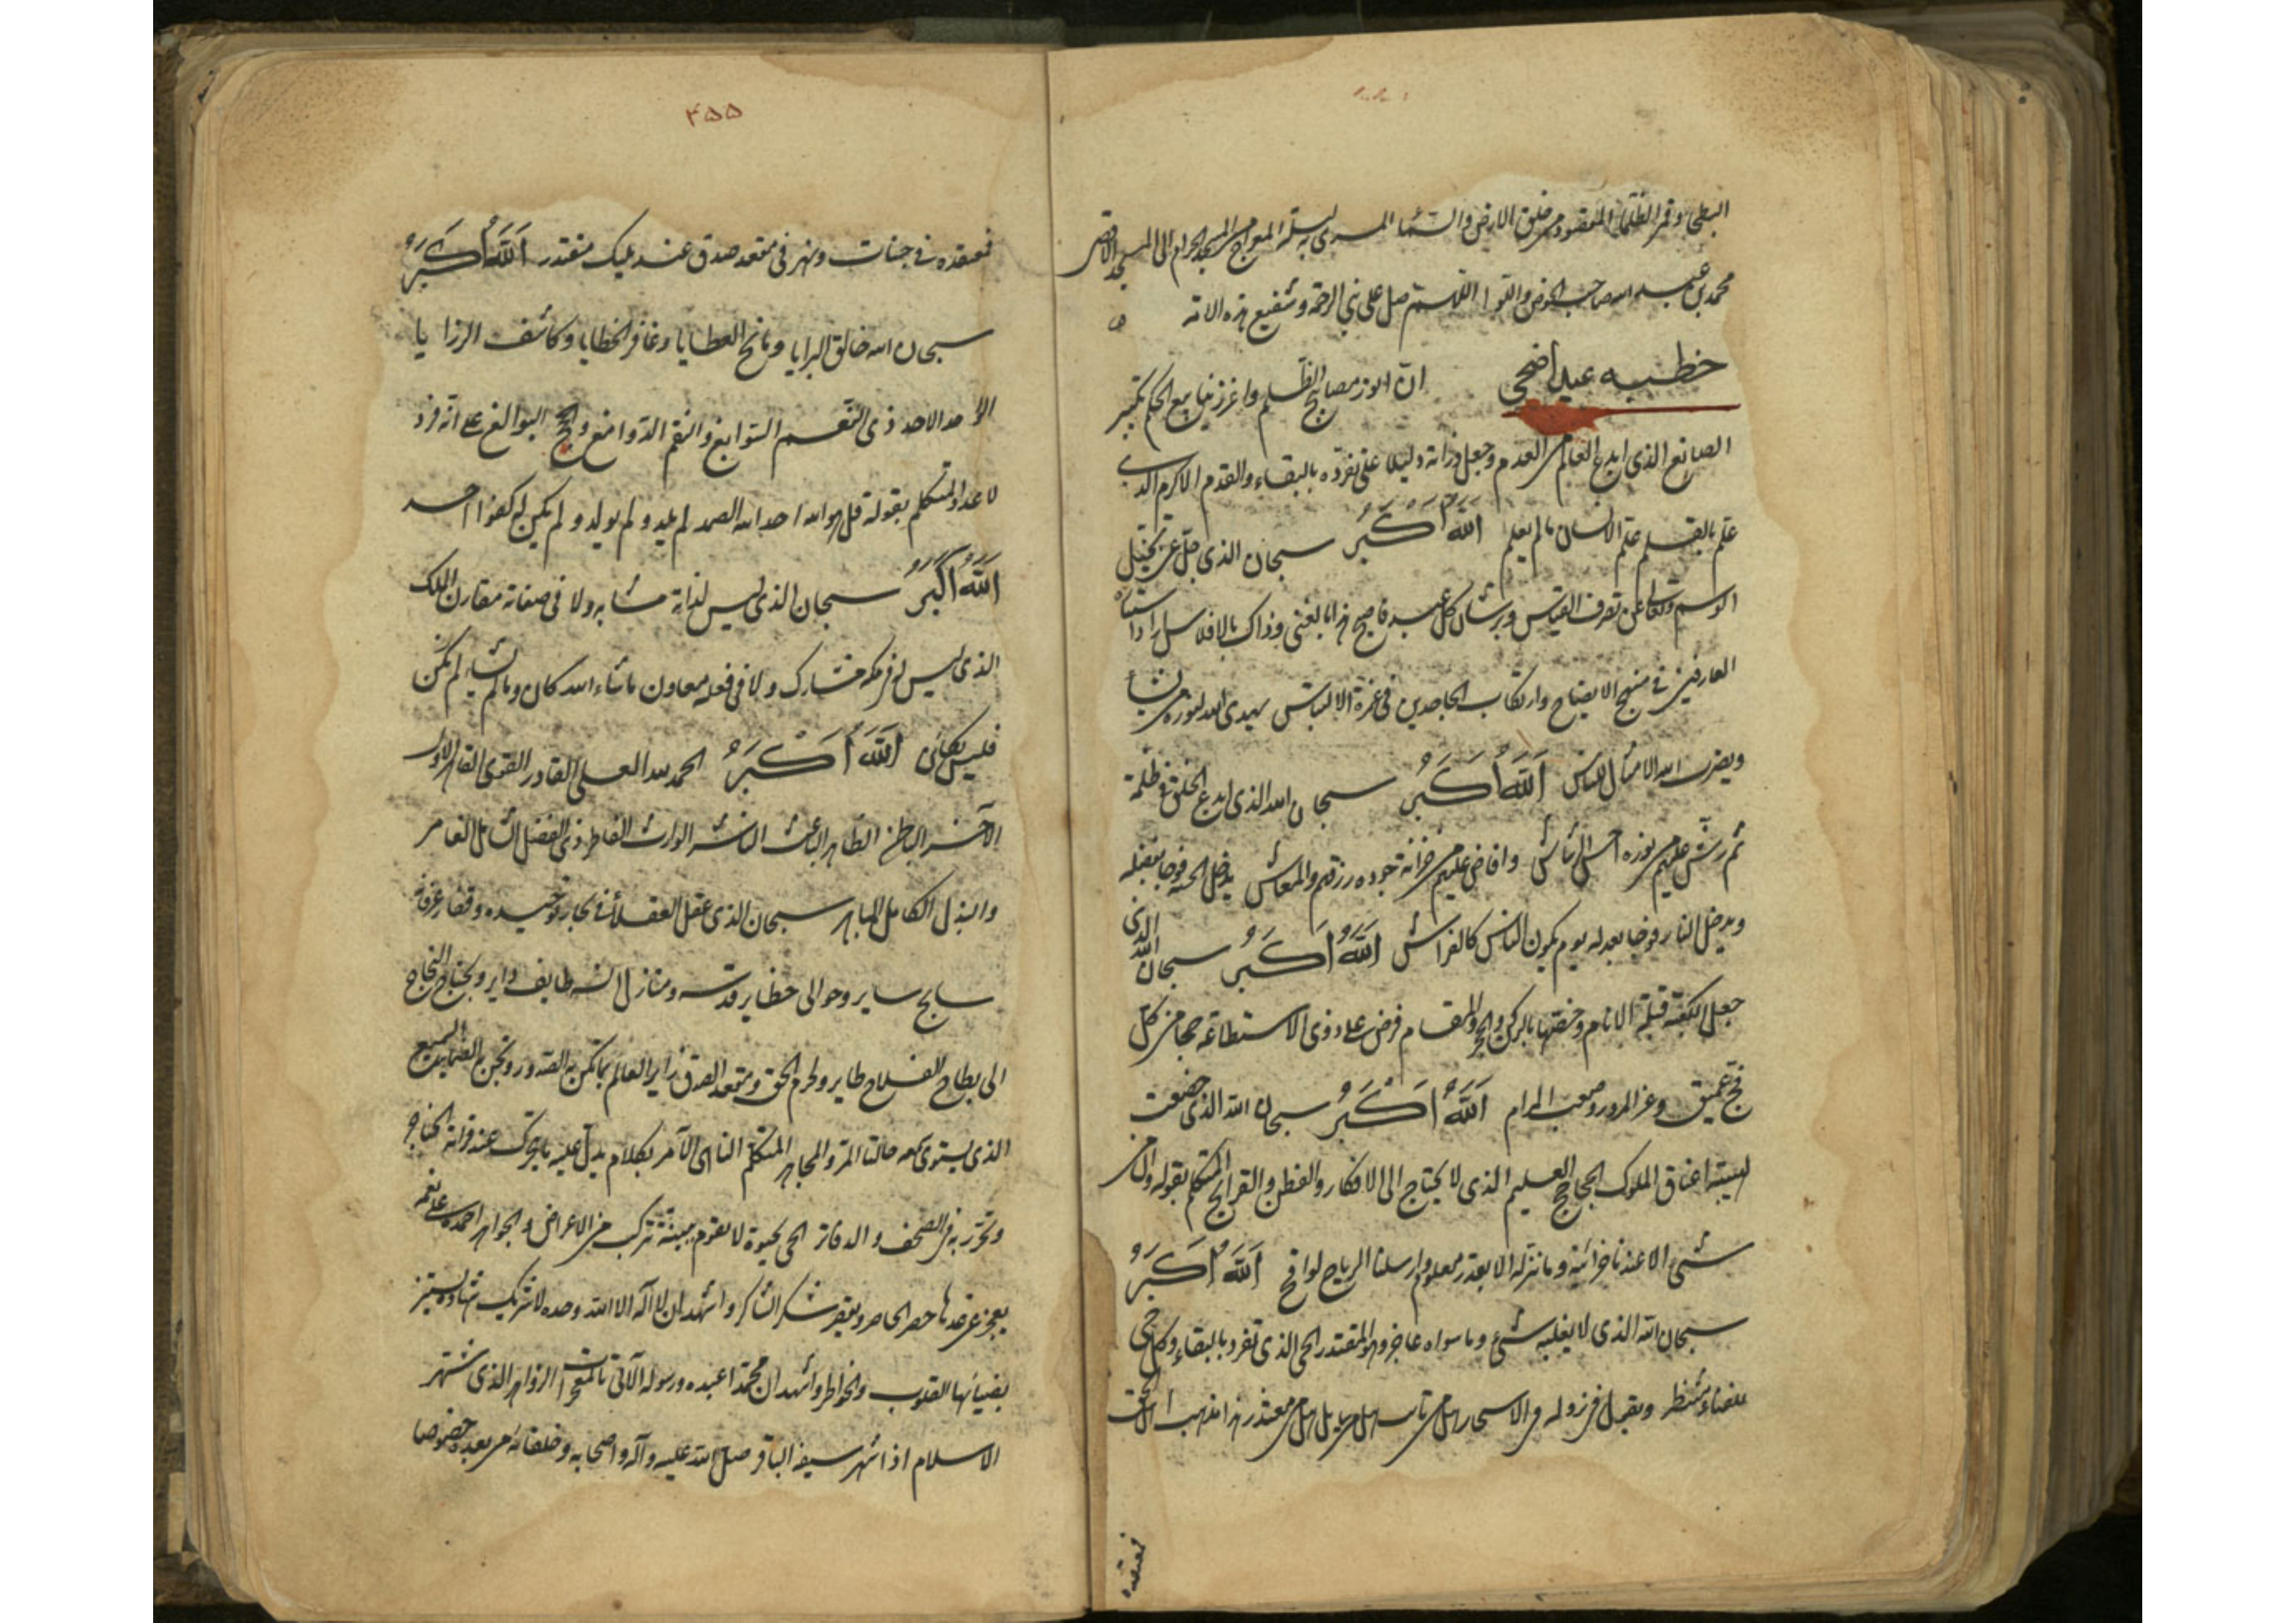 البطحا وقمر الظلماء المقصود من خلق الارض والسماء المسرى به ليلة المعراج من المسجد الحرام الى المسجد الاقصى
محمد بن عبد الله صاحب الحوض واللوا اللهم صل على نبي الرحمة وشفيع هذه الامة
خطبه عید اضحی ان انور مصابيح الظلم واغزر ينابيع الحكم تكبير
الصانع الذي ابدع العالم من العدم وجعل ذراته دليلا على تفرده بالبقاء والقدم الاكرم الذي
علم بالقلم علم الانسان ما لم يعلم الله اكبر سبحان الذي جل عن تخيل
الوسم وتعالى عن تصرف القياس وبرشاد كل عبيد هذا بالغنى وذاك بالافلاس
العارفين في منهج الايضاح وارتكاب الجاحدين في الالتباس يهدي الله لنوره من يشاء
ويضرب الله الامثال للناس الله اكبر سبحان الله الذي ابدع الخلق في ظلمة
ثم رش عليهم من نوره وافاض عليهم من خزانة جوده رزقهم والمعاش يدخل الجنة فوجا بفضله
ويدخل النار فوجا بعدله يوم يكون الناس كالفراش الله اكبر سبحان الله الذي
جعل الكعبة قبلة الانام وخصها بالركن والحجر والمقام فرض على ذوي الاستطاعة حجا من كل
فج عميق وعز المرور وصعب المرام الله اكبر سبحان الله الذي خضعت
لهيبته اعناق الملوك الجحاجح العليم الذي لا يحتاج الى الافكار والفطن والقرائح المتكلم بقوله وان من
شيء الا عندنا خزائنه وما ننزله الا بقدر معلوم وارسلنا الرياح لواقح الله اكبر
سبحان الله الذي لا يغلبه شيء وما سواه عاجز وهو المقتدر الحي الذي تفرد بالبقاء وكل حي
للفناء منتظر ويقبل في نزوله في الاسحار هل من تائب هل من سائل هل من معتذر هذا مذهب اهل الحق
فمعتقده
۴۵۵
فمعتقده في جنات ونهر في مقعد صدق عند مليك مقتدر الله اكبر
سبحان الله خالق البرايا ومانح العطايا وغافر الخطايا وكاشف الرزايا
الاحد ذي النعم السوابغ والنقم الدوامغ والحجج البوالغ على انه فرد
لا عدد المتكلم بقوله قل هو الله احد الله الصمد لم يلد ولم يولد ولم يكن له كفوا احد
الله اكبر سبحان الذي ليس لذاته مشابه ولا في صفاته مقارن الملك
الذي ليس له في ملكه مشارك ولا في فعله معاون ما شاء الله كان وما لم يشاء لم يكن
فليس بكائن الله اكبر الحمد لله العلي القادر القوي القاهر الاول
الآخر الباطن الظاهر الباعث الناشر الوارث الفاطر ذي الفضل الشامل الغامر
والبذل الكامل الباهر سبحان الذي عقل العقلاء في بحار توحيده وقفار عرفانه
سابح ساير وحوالى حظاير قدسه ومنازل انسه طايف داير وبجناح النجاح
الى بطاح الفلاح طاير ولحرم الحق ومقعد الصدق زاير العالم بما تكن به الصدور وتجن به الضماير السميع
الذي يستوى سمعه حالتا المسر والمجاهر المتكلم الناهي الآمر بكلام يدل عليه ما يتحرك عند قراته الحناجر
وتحرر به في الصحف والدفاتر الحي بحيوة لا تقوم ببنية تتركب من الاعراض والجواهر احمده على نعمه
يعجز عن عدها حصر الحاصر ويقصر شكر الشاكر واشهد ان لا اله الا الله وحده لا شريك له شهادة يستنير
بضيائها القلوب والخواطر واشهد ان محمدا عبده ورسوله الآتي بالمعجزات الزواهر الذي اشتهر
الاسلام اذا شهر سيفه الباتر صلى الله عليه وآله واصحابه وخلفائه من بعده خصوصا